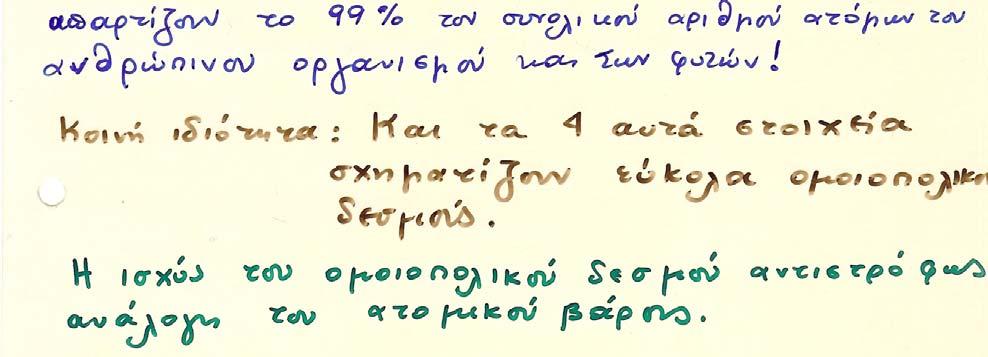 απαρτίζουν το 99% του συνολικού αριθμού ατόμων του
ανθρώπινου οργανισμού και των φυτών!
Κοινή ιδιότητα: Και τα 4 αυτά στοιχεία
σχηματίζουν εύκολα ομοιοπολικο
δεσμούς.
Η ισχύς του ομοιοπολικού δεσμού αντιστρόφως
ανάλογη του ατομικού βάρους.